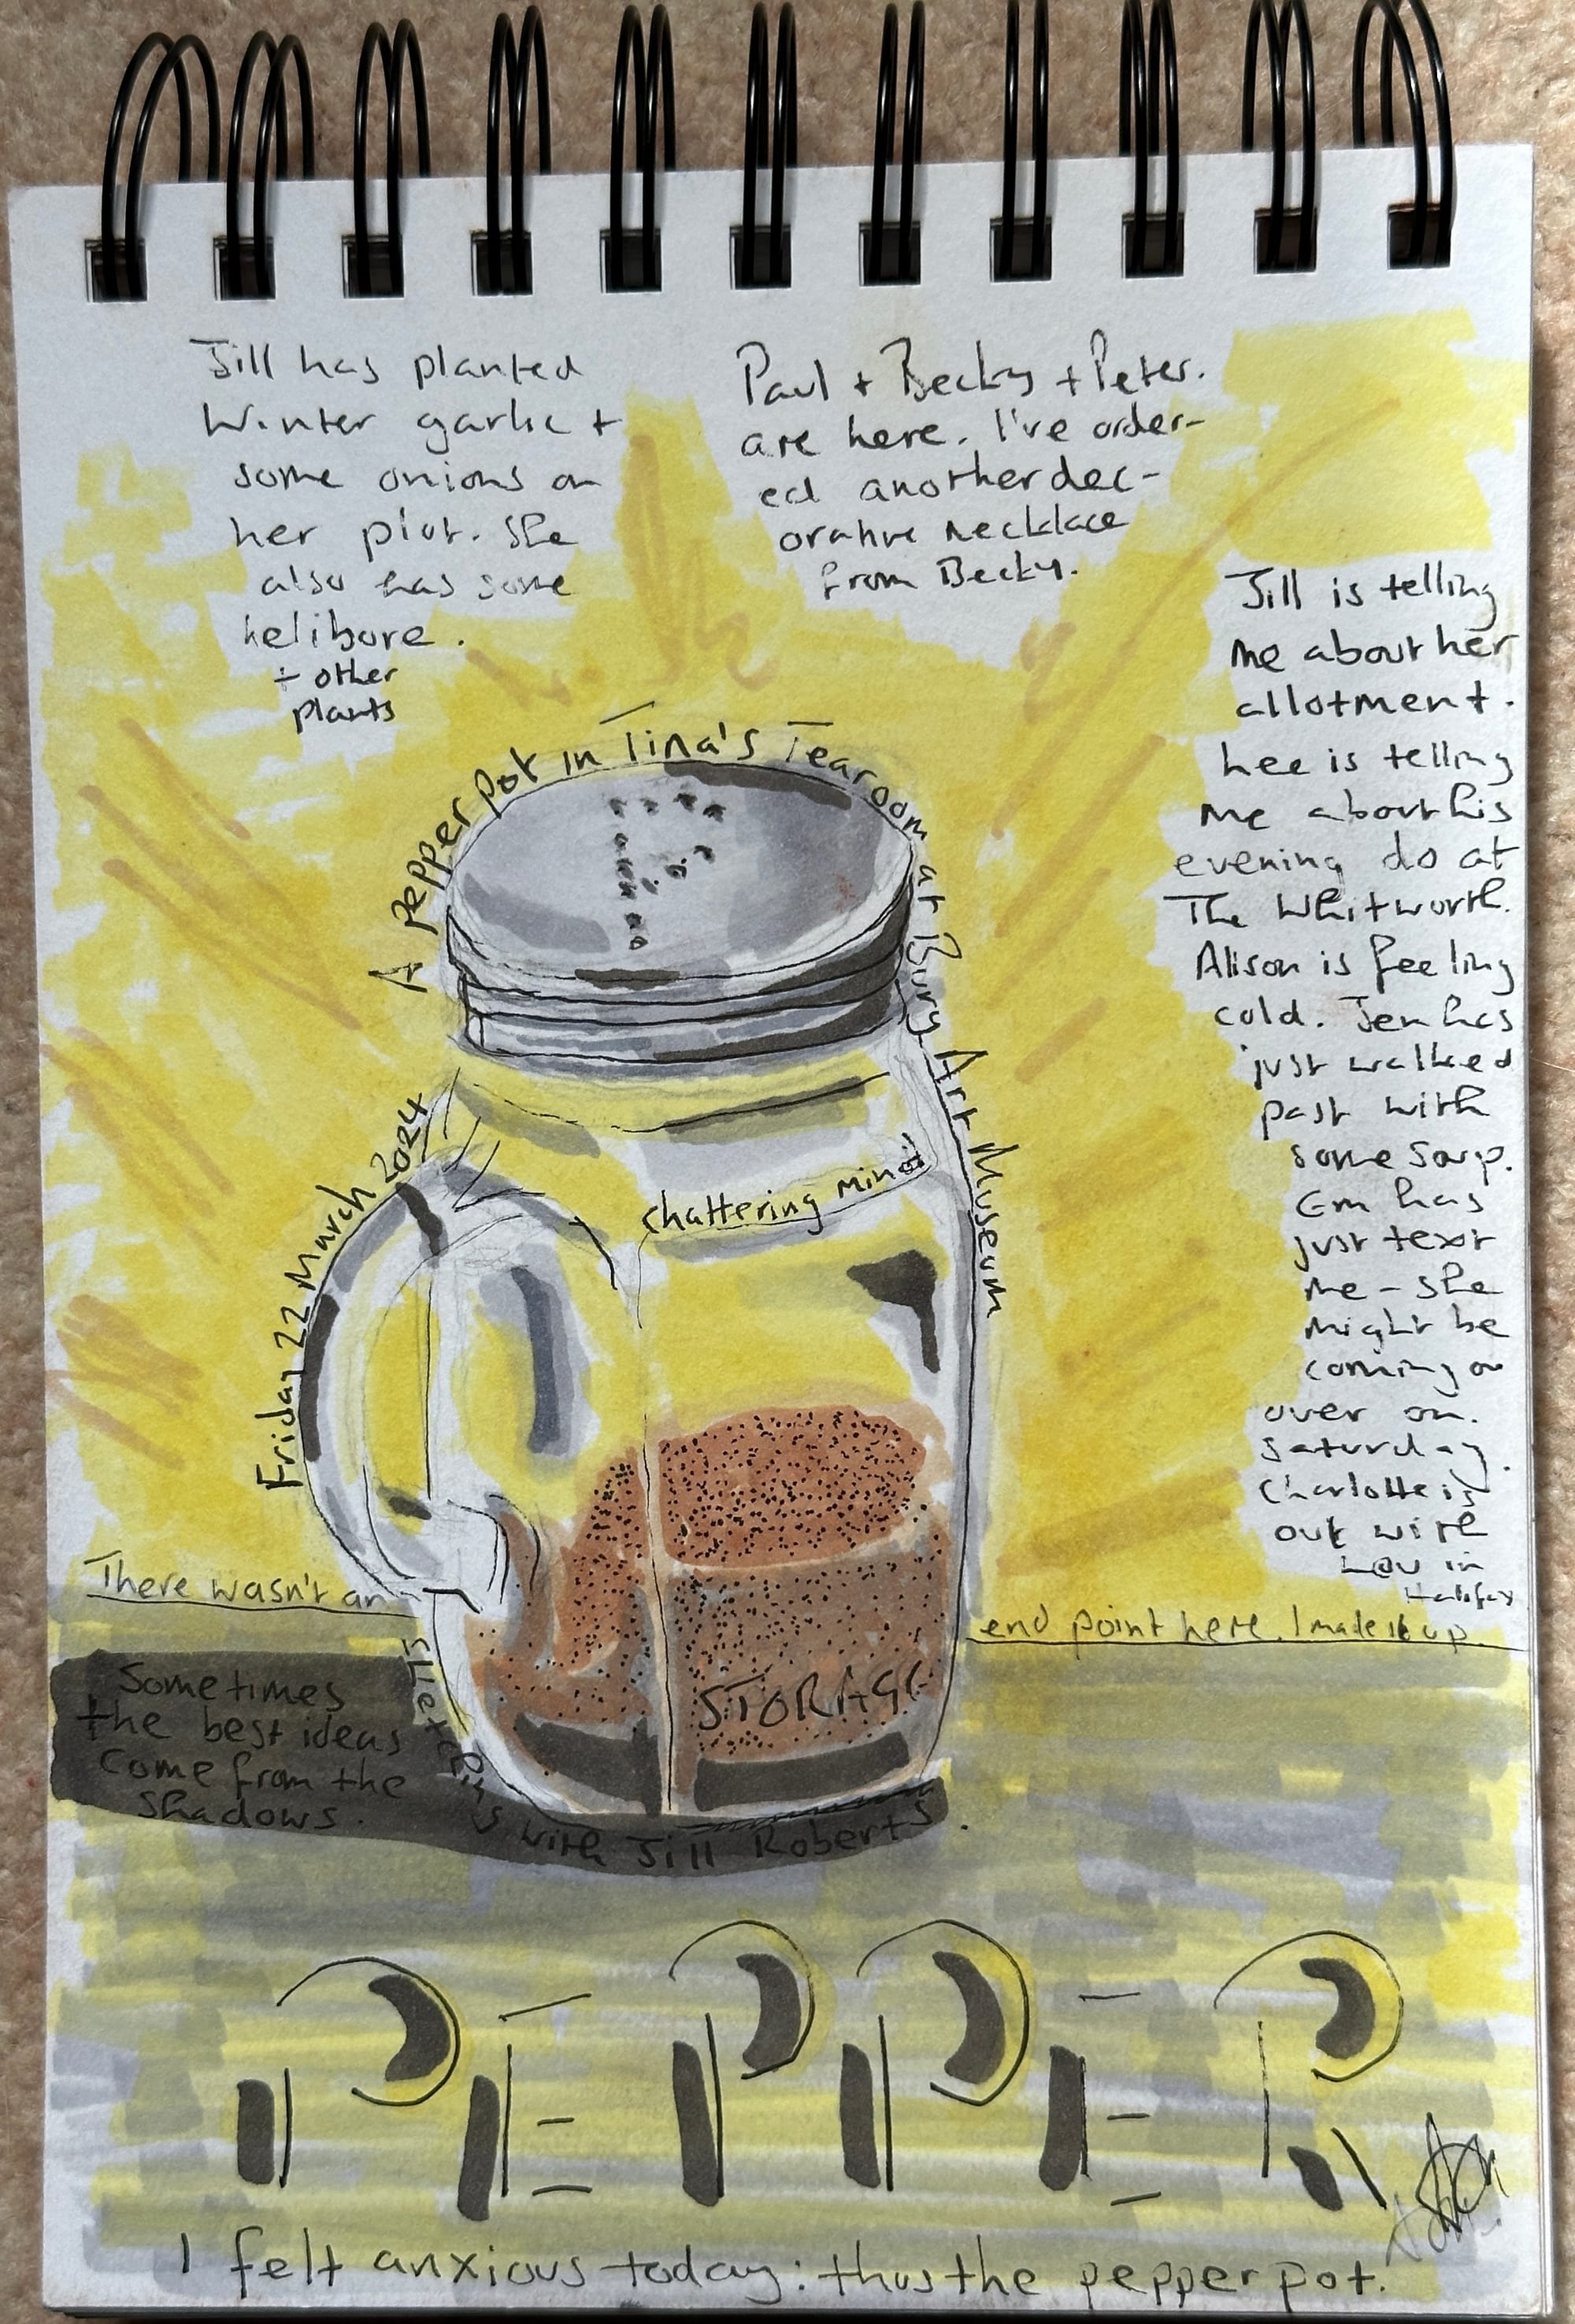 Jill has planted
Winter garlic +
some onions on
her plot. She
also has some
helibore.
+ other
plants
Paul + Becky + Peter.
are here. I've order-
ed another dec-
orative necklace
from Becky.
Jill is telling
me about her
allotment.
Lee is telling
me about his
evening do at
The Whitworth.
Alison is feeling
cold. Jen has
just walked
past with
some soup.
Em has
just text
me - she
might be
coming on
over on.
Saturday.
Charlotte is
out with
Lou in
Halifax
A pepper pot in Tina's Tearoom at Bury Art Museum
Friday 22 March 2024
chattering mind
There wasn't an
end point here. I made it up.
STORAGE
Sometimes
the best ideas
come from the
shadows.
Sketching with Jill Roberts.
PEPPER
I felt anxious today: thus the pepper pot.